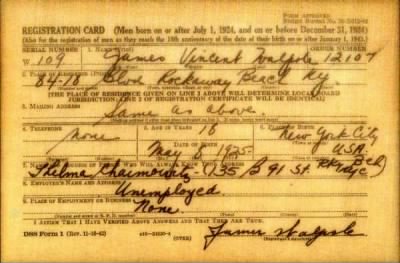 FORM APPROVED
REGISTRATION CARD (Men born on or after July 1, 1924, and on or before December 31, 1924)
(Also for the registration of men as they reach the 18th anniversary of the date of their birth on or after January 1, 1925.)
SERIAL NUMBER
ORDER NUMBER
W 109 James Vincent Walpole 12107
84-18 Blvd Rockaway Beach Ny
[THE PLACE OF RESIDENCE GIVEN ON LINE 2 ABOVE WILL DETERMINE LOCAL BOARD
JURISDICTION; LINE 2 OF REGISTRATION CERTIFICATE WILL BE IDENTICAL]
3. MAILING ADDRESS
Same as above
4. TELEPHONE
5. AGE IN YEARS
none
18
New York City
DATE OF BIRTH
May 1925
USA
WHO WILL ALWAYS KNOW YOUR ADDRESS
Thelma 135 B 91 St. Bch
8. EMPLOYER'S NAME AND ADDRESS
Unemployed
9. PLACE OF EMPLOYMENT OR BUSINESS
None
I AFFIRM THAT I HAVE VERIFIED ABOVE ANSWERS AND THAT THEY ARE TRUE.
DSS Form 1
(OVER)
James Walpole